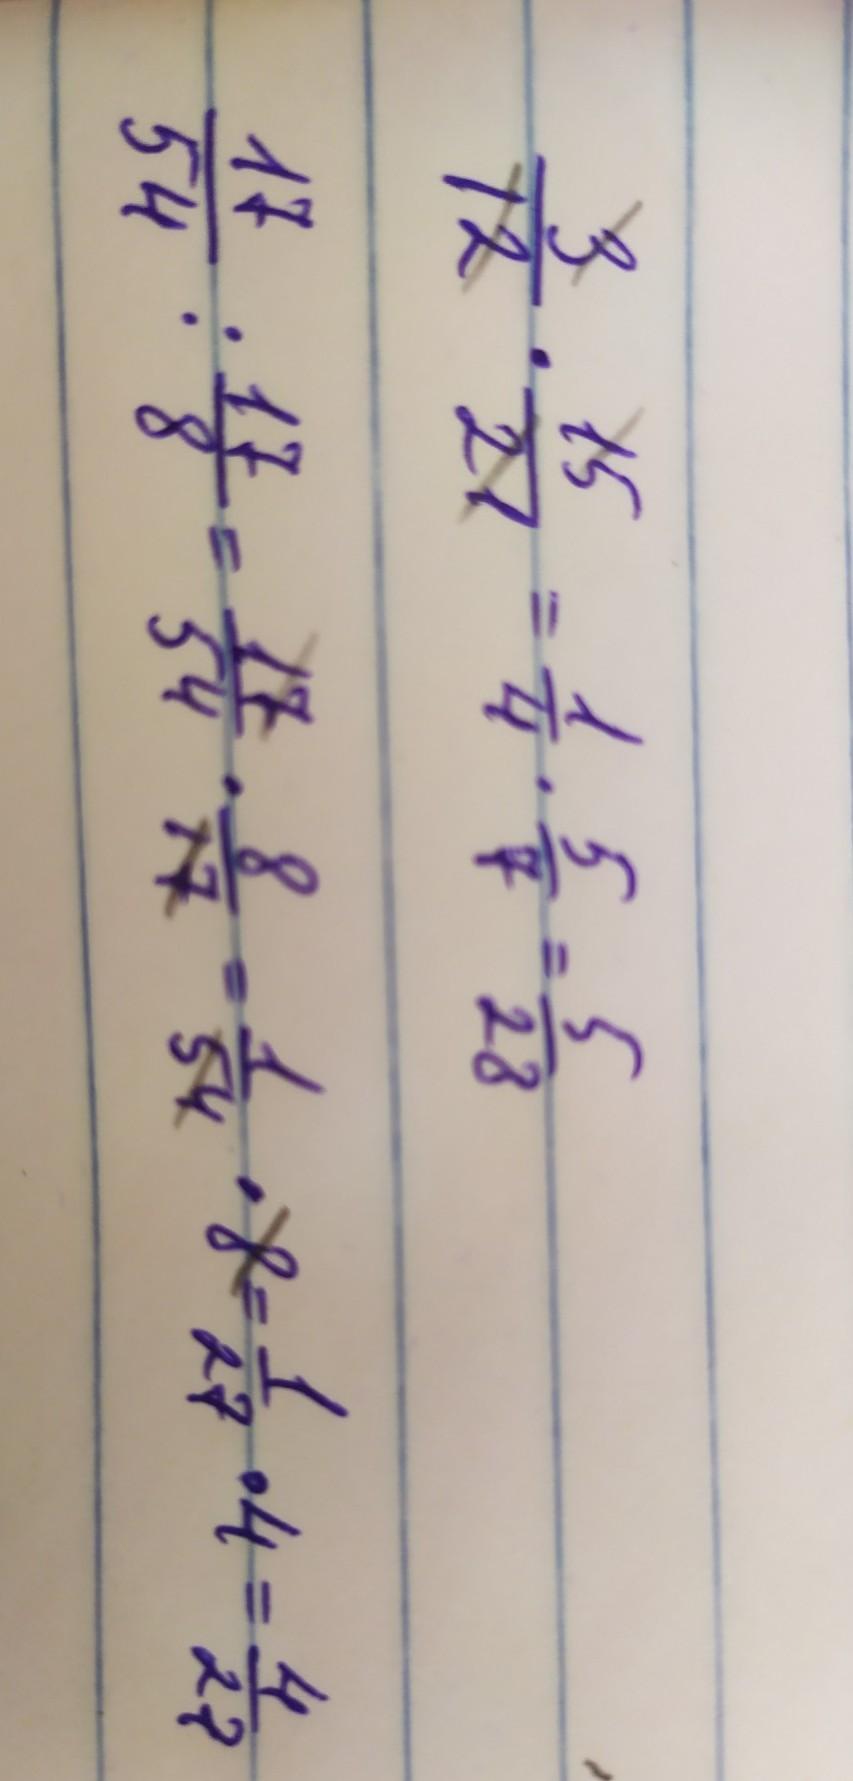 3/12 · 15/21 = 1/4 · 5/7 = 5/28
17/54 : 17/8 = 17/54 · 8/17 = 1/54 · 8 = 1/27 · 4 = 4/27